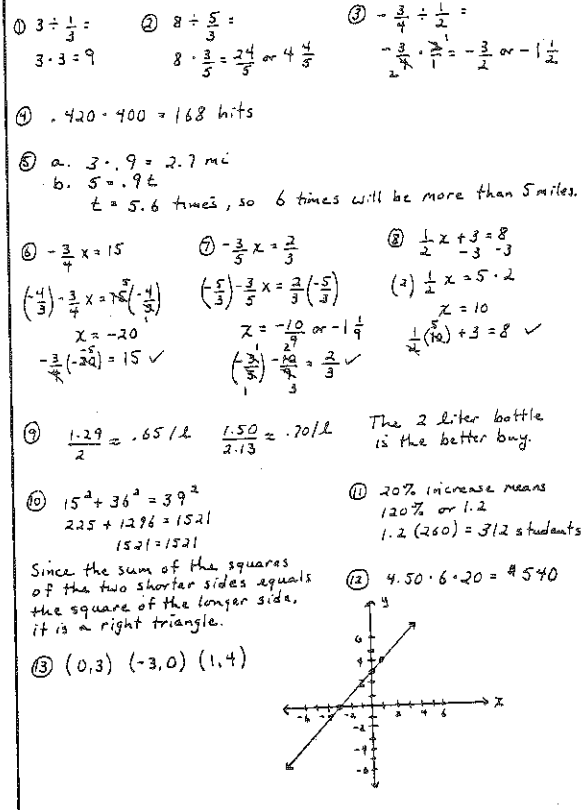 ① 3 ÷ 1/3 =
3 · 3 = 9
② 8 ÷ 5/3 =
8 · 3/5 = 24/5 or 4 4/5
③ - 3/4 ÷ 1/2 =
- 3/4 · 2/1 = - 3/2 or -1 1/2
2 1
④ .420 · 400 = 168 hits
⑤ a. 3 · .9 = 2.7 mi
b. 5 = .9t
t = 5.6 times, so 6 times will be more than 5 miles.
⑥ - 3/4 x = 15
(-4/3) - 3/4 x = 15 (-4/3)
5 1
x = -20
- 3/4 (-20) = 15 ✓
-5
⑦ - 3/5 x = 2/3
(-5/3) - 3/5 x = 2/3 (-5/3)
x = -10/9 or -1 1/9
(-3/5) -10/9 = 2/3 ✓
1 2
1 3
⑧ 1/2 x + 3 = 8
-3 -3
(2) 1/2 x = 5 · 2
x = 10
1/2 (10) + 3 = 8 ✓
5
⑨ 1.29/2 ≈ .65/l 1.50/2.13 ≈ .70/l The 2 liter bottle
is the better buy.
⑩ 15² + 36² = 39²
225 + 1296 = 1521
1521 = 1521
Since the sum of the squares
of the two shorter sides equals
the square of the longer side,
it is a right triangle.
⑪ 20% increase means
120% or 1.2
1.2 (260) = 312 students
⑫ 4.50 · 6 · 20 = $540
⑬ (0,3) (-3,0) (1,4)
y
6
4
2
-6 -2 2 4 6 x
-2
-4
-6